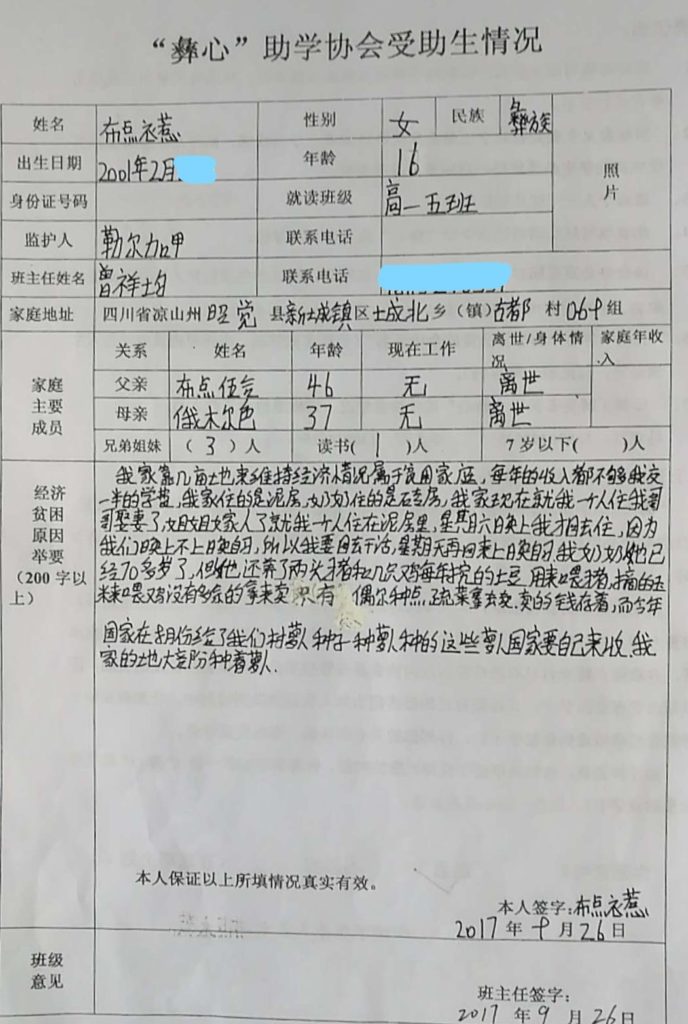 “彝心”助学协会受助生情况
姓名 布点衣惹 性别 女 民族 彝族 照片
出生日期 2001年2月 年龄 16
身份证号码 就读班级 高一五班
监护人 勒尔加甲 联系电话
班主任姓名 曾祥均 联系电话
家庭地址 四川省凉山州 昭觉 县 新城镇 区 城北 乡（镇）古都 村 组
家庭主要成员 关系 姓名 年龄 现在工作 离世/身体情况 家庭年收入
父亲 布点伍 46 无 离世
母亲 俄木尔色 37 无 离世
兄弟姐妹 （3）人 读书(1)人 7岁以下( )人
经济贫困原因举要（200字以上）
我家靠几亩土地来维持经济情况属于贫困家庭，每年的收入都不够我交
一半的学费，我家住的是泥房，奶奶住的是砖房，我家现在就我一个人住我哥
哥娶妻了姐姐家人了就我一个人住在泥房里，星期六晚上我才回去住，因为
我们晚上不上晚自习，所以我要回去干活，星期天再回来上晚自习我奶奶她已
经70多岁了，但她还养了两头猪和几只鸡每年挖的土豆 用来喂猪，搞的玉
米来喂鸡没有多余的拿来卖 只有 偶尔种点 蔬菜拿去卖.卖的钱存着，而今年
国家在8月份给了我们村萝卜种子种萝卜种的这些萝卜国家要自己来收.我
家的土地大部份种着萝卜.
本人保证以上所填情况真实有效。
本人签字:布点衣惹
2017 年 9 月 26 日
班级意见
班主任签字：
2017 年 9 月 26 日